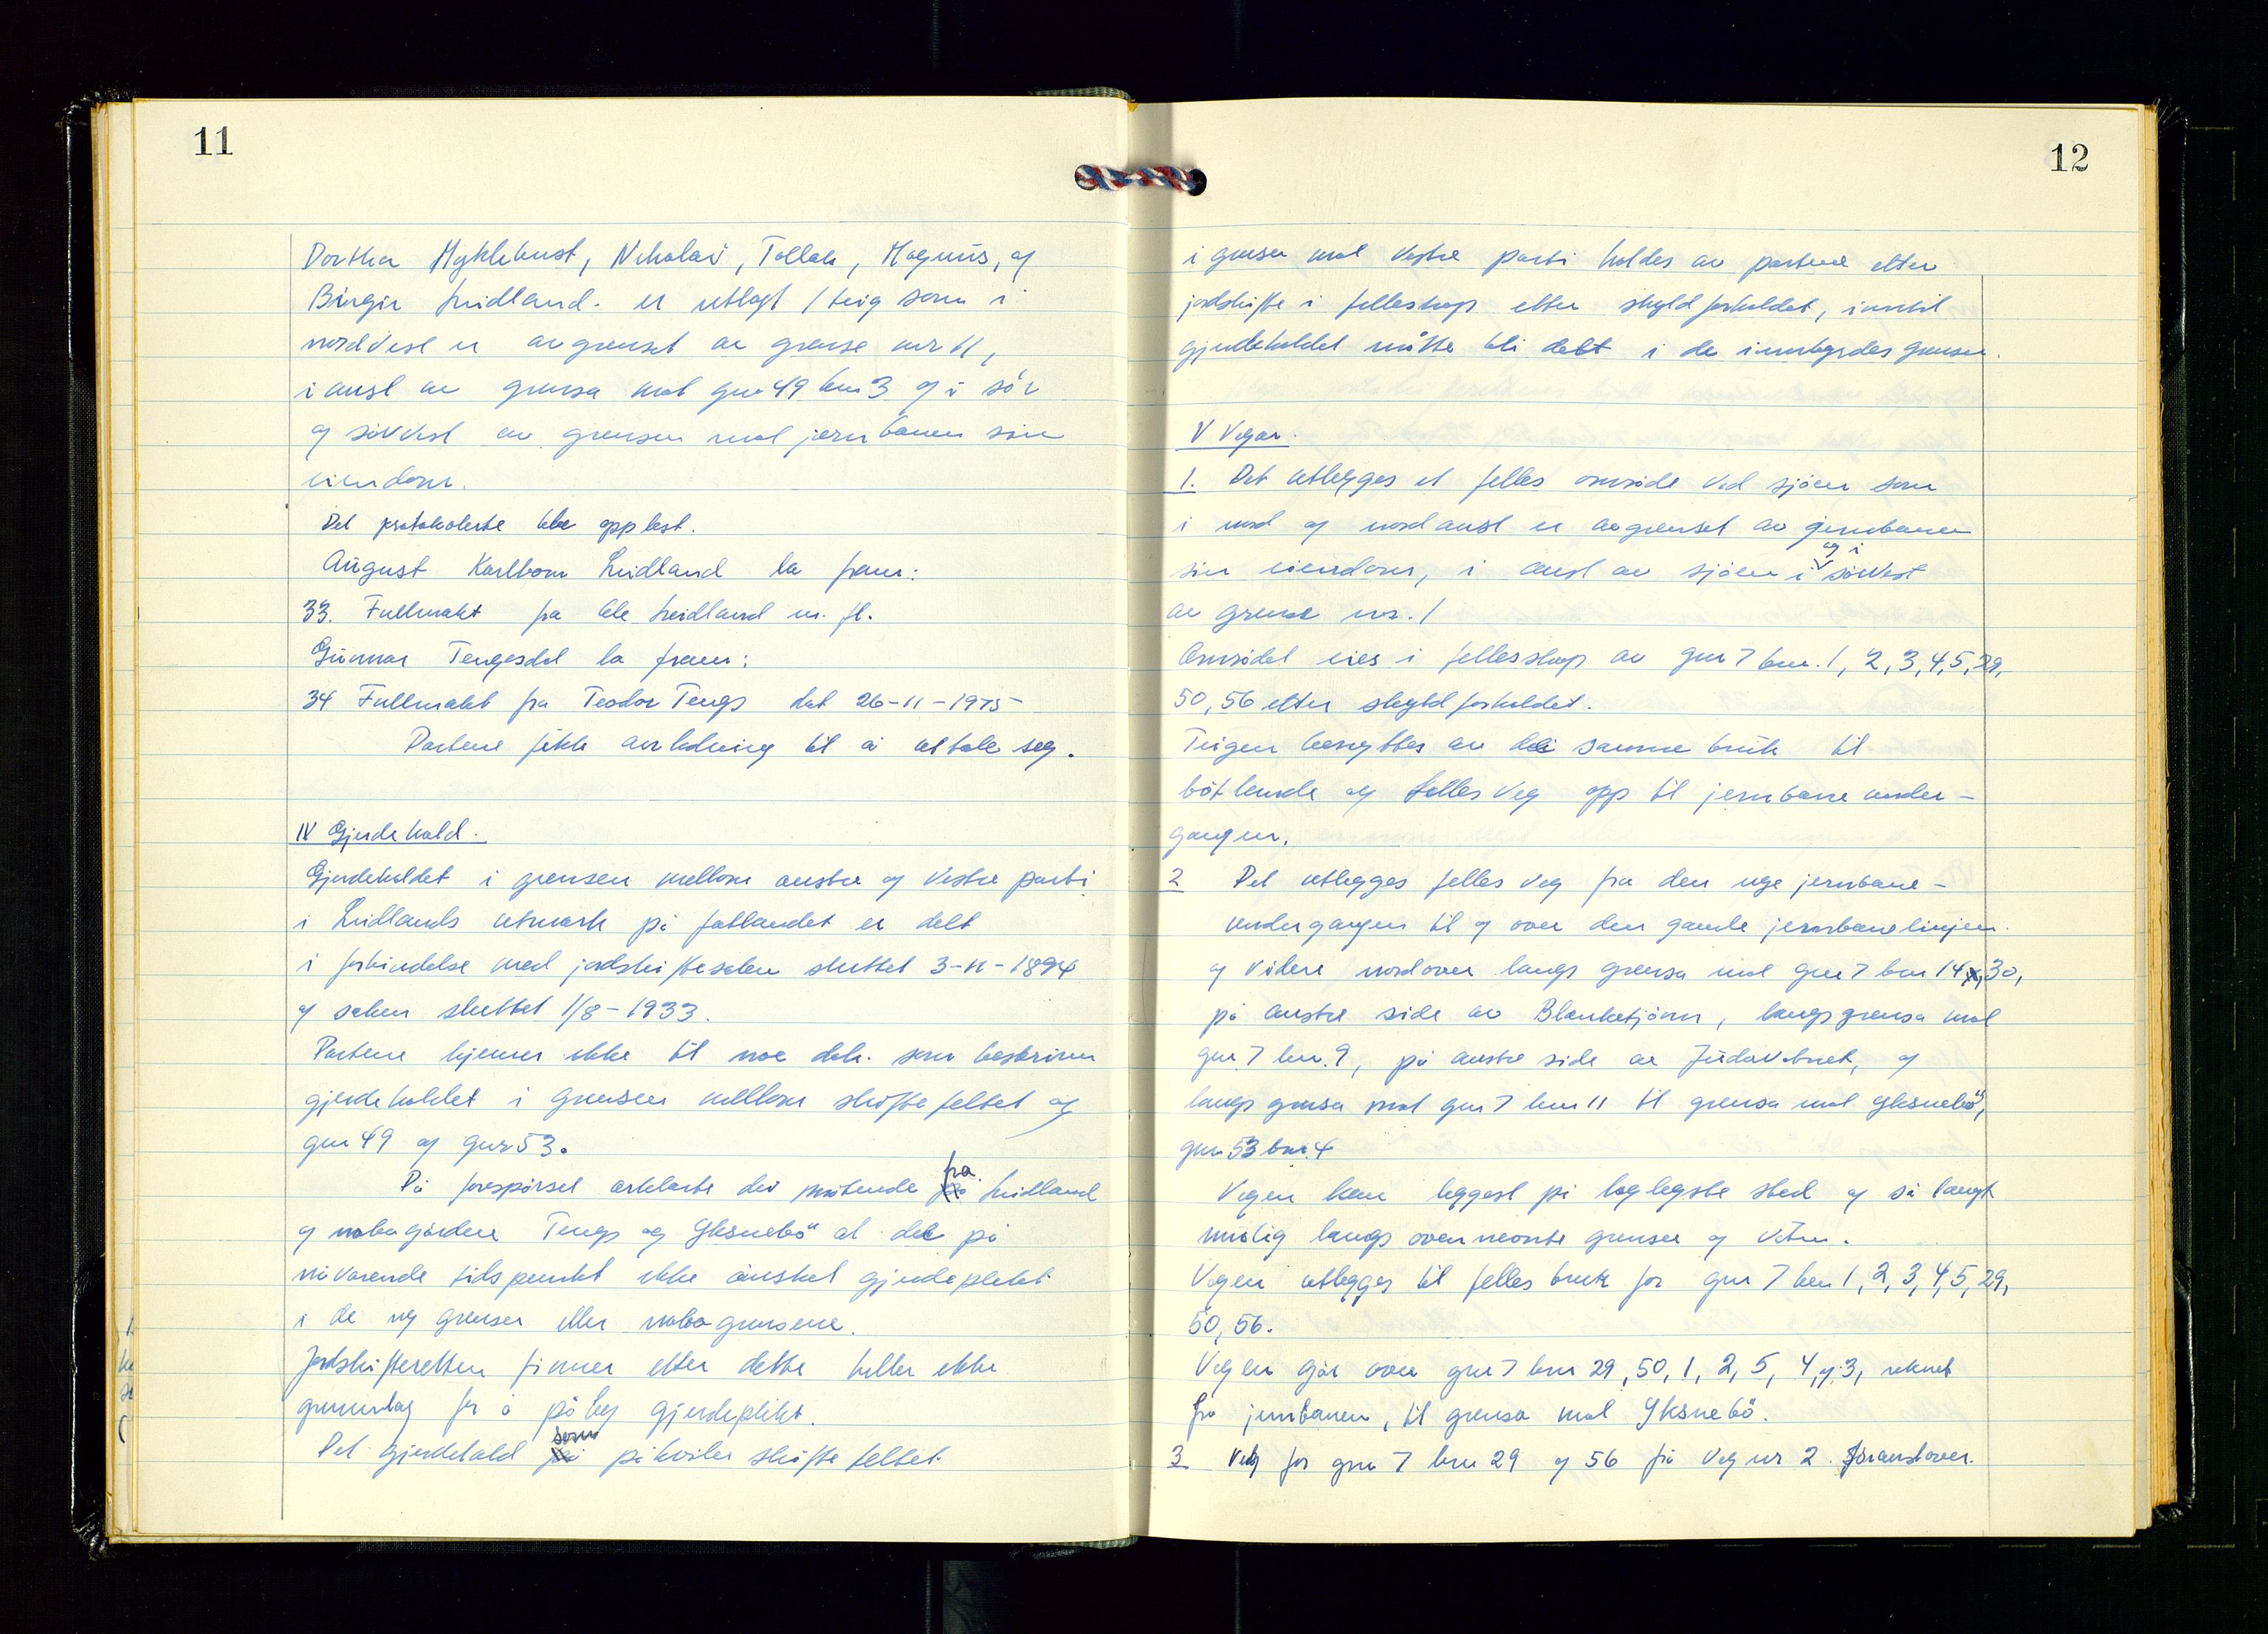 11
Dorthea Myklebust, Nikolai, Tollak, Magnus, og
Birger Leidland. er utlagt 1 teig som i
nordvest er avgrenset av grense nr 11,
i aust av grensa mot gnr 49 bnr 3 og i sör
og sörvest av grensen mot jernbanen sin
eiendom.
Det protokolerte ble opplest.
August Karlbom Leidland la fram:
33. Fullmakt fra Ole Leidland m. fl.
Gunnar Tengesdal la fram:
34 Fullmakt fra Teodor Tengs dat 26-11-1975
Partene fikk anledning til å uttale seg.
IV Gjerdehold.
Gjerdeholdet i grensen mellom austre og vestre parti
i Leidlands utmark på fatlandet er delt
i forbindelse med jordskiftesaken sluttet 3-11-1894
og saken sluttet 1/8-1933.
Partene kjenner ikke til noe dok. som beskriver
gjerdeholdet i grensen mellom skiftefeltet og
gnr 49 og gnr 53.
På forespörsel erklærte dei mötende fra Leidland
og nabogårdene Tengs og Yksnebö at det på
nåværende tidspunkt ikke önsket gjerdeplikt
i de ny grenser eller nabogrensene.
Jordskifteretten finner etter dette heller ikke
grunnlag for å påleg gjerdeplikt.
Det gjerdehald som påkviler skiftefeltet
12
i grensen mot vestre parti holdes av partene etter
jordskifte i felleskap etter skyldforholdet, inntil
gjerdeholdet måtte bli delt i de innbyrdes grenser.
V Vegar.
1. Det utlegges et felles område ved sjöen som
i nord og nordaust er avgrenset av jernbanen
sin eiendom, i aust av sjöen og i sörvest
av grense nr. 1
Området eies i fellesskap av gnr 7 bnr. 1, 2, 3, 4, 5, 29,
50, 56 etter skyldforholdet.
Teigen benyttes av dei samme bruk til
båtlende og felles veg opp til jernbane under-
gangen.
2 Det utlegges felles veg fra den nye jernbane-
undergangen til og over den gamle jernbanelinjen
og videre nordover langs grensa mot gnr 7 bnr 14, 30,
på austre side av Blanketjönn, langs grensa mot
gnr 7 bnr. 9, på austre side av Judavatnet, og
langs grensa mot gnr 7 bnr 11 til grensa mot Yksnebö,
gnr 53 bnr. 4
Vegen kan leggest på laglegste sted og så langt
mulig langs ovennevnte grenser og vatn.
Vegen utlegges til felles bruk for gnr 7 bnr 1, 2, 3, 4, 5, 29,
50, 56.
Vegen går over gnr 7 bnr 29, 50, 1, 2, 5, 4, og 3, reknet
frå jernbanen, til grensa mot Yksnebö.
3 Veg for gnr 7 bnr 29 og 56 frå veg nr 2